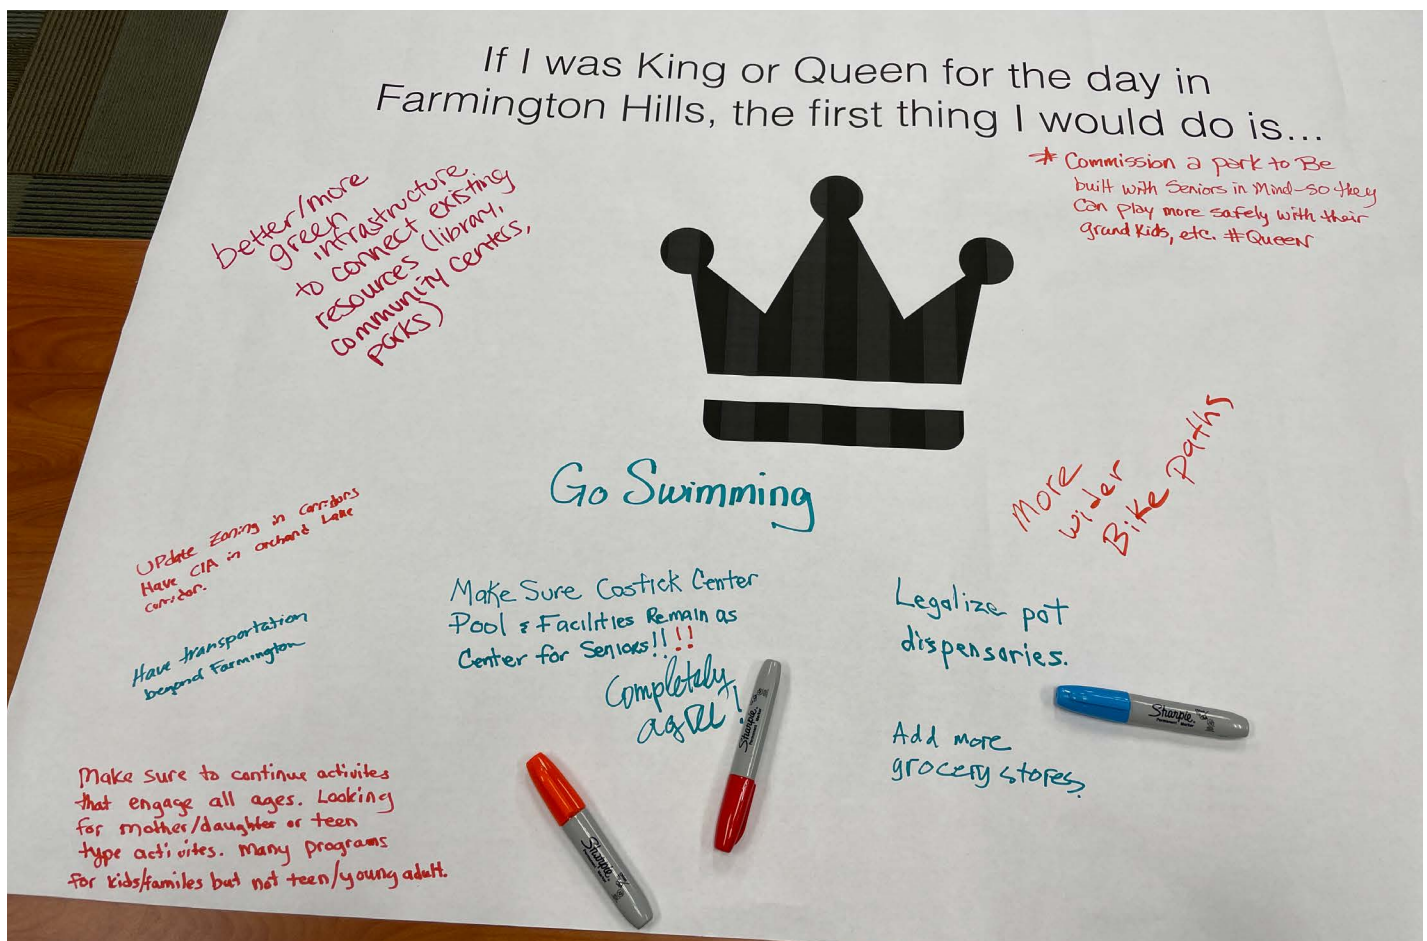 If I was King or Queen for the day in
Farmington Hills, the first thing I would do is...
better/more
green
infrastructure
to connect existing
resources (library,
community centers,
parks)
* Commission a park to Be
built with Seniors in Mind-so they
Can play more safely with their
grand Kids, etc. #QueeN
Go Swimming
More
wider
Bike paths
UPdate Zoning in Corridors
Have CIA in Orchard Lake
corridor.
Have transportation
beyond Farmington
Make Sure Costick Center
Pool & Facilities Remain as
Center for Seniors!! !!
Completely
agree!
Legalize pot
dispensories.
Add more
grocery stores.
Make sure to continue activites
that engage all ages. Looking
for mother/daughter or teen
type activites. Many programs
for kids/familes but not teen/young adult.
Sharpie
Permanent Marker
Sharpie
Permanent Marker
Sharpie